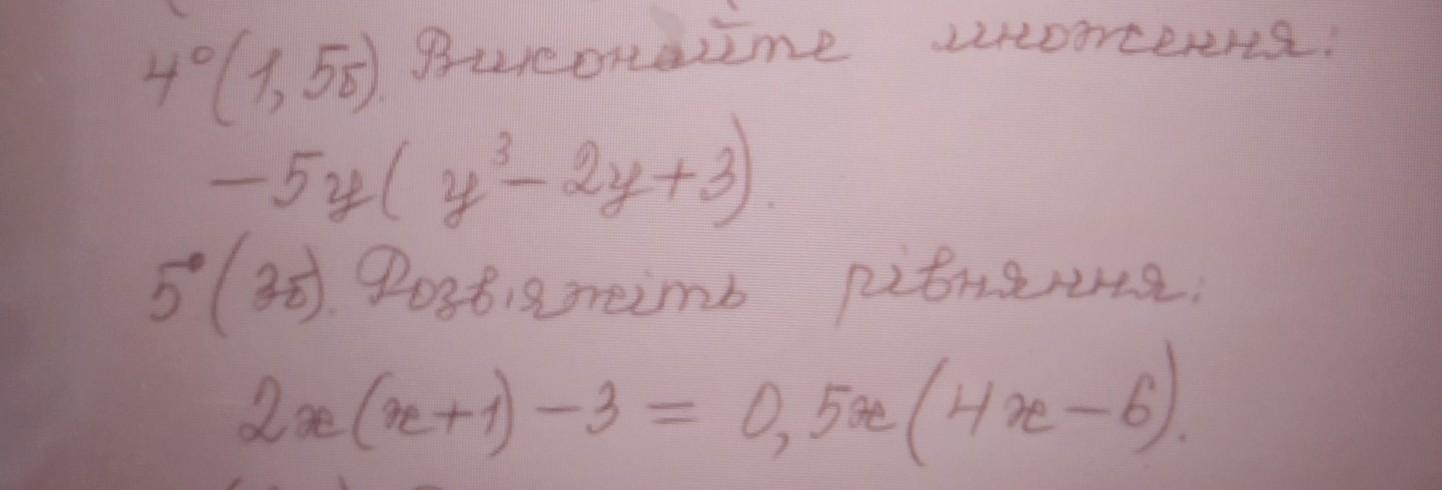 4°(1,5б). Виконайте множення:
-5y(y³-2y+3).
5°(3б). Розв'яжіть рівняння:
2x(x+1)-3=0,5x(4x-6).